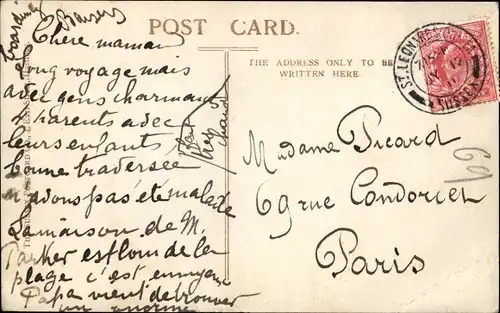 Baisers
POST CARD.
THE ADDRESS ONLY TO BE
WRITTEN HERE.
ST LEONARDS
SUSSEX
Chère maman
Long voyage mais
avec gens charmants
parents avec
leurs enfants,
bonne traversée
avons pas été malade
La maison de M.
Parker est loin de la
plage c'est ennuyeux
Papa vient de trouver
un énorme
Madame Picard
69 rue Condorcet
Paris
69